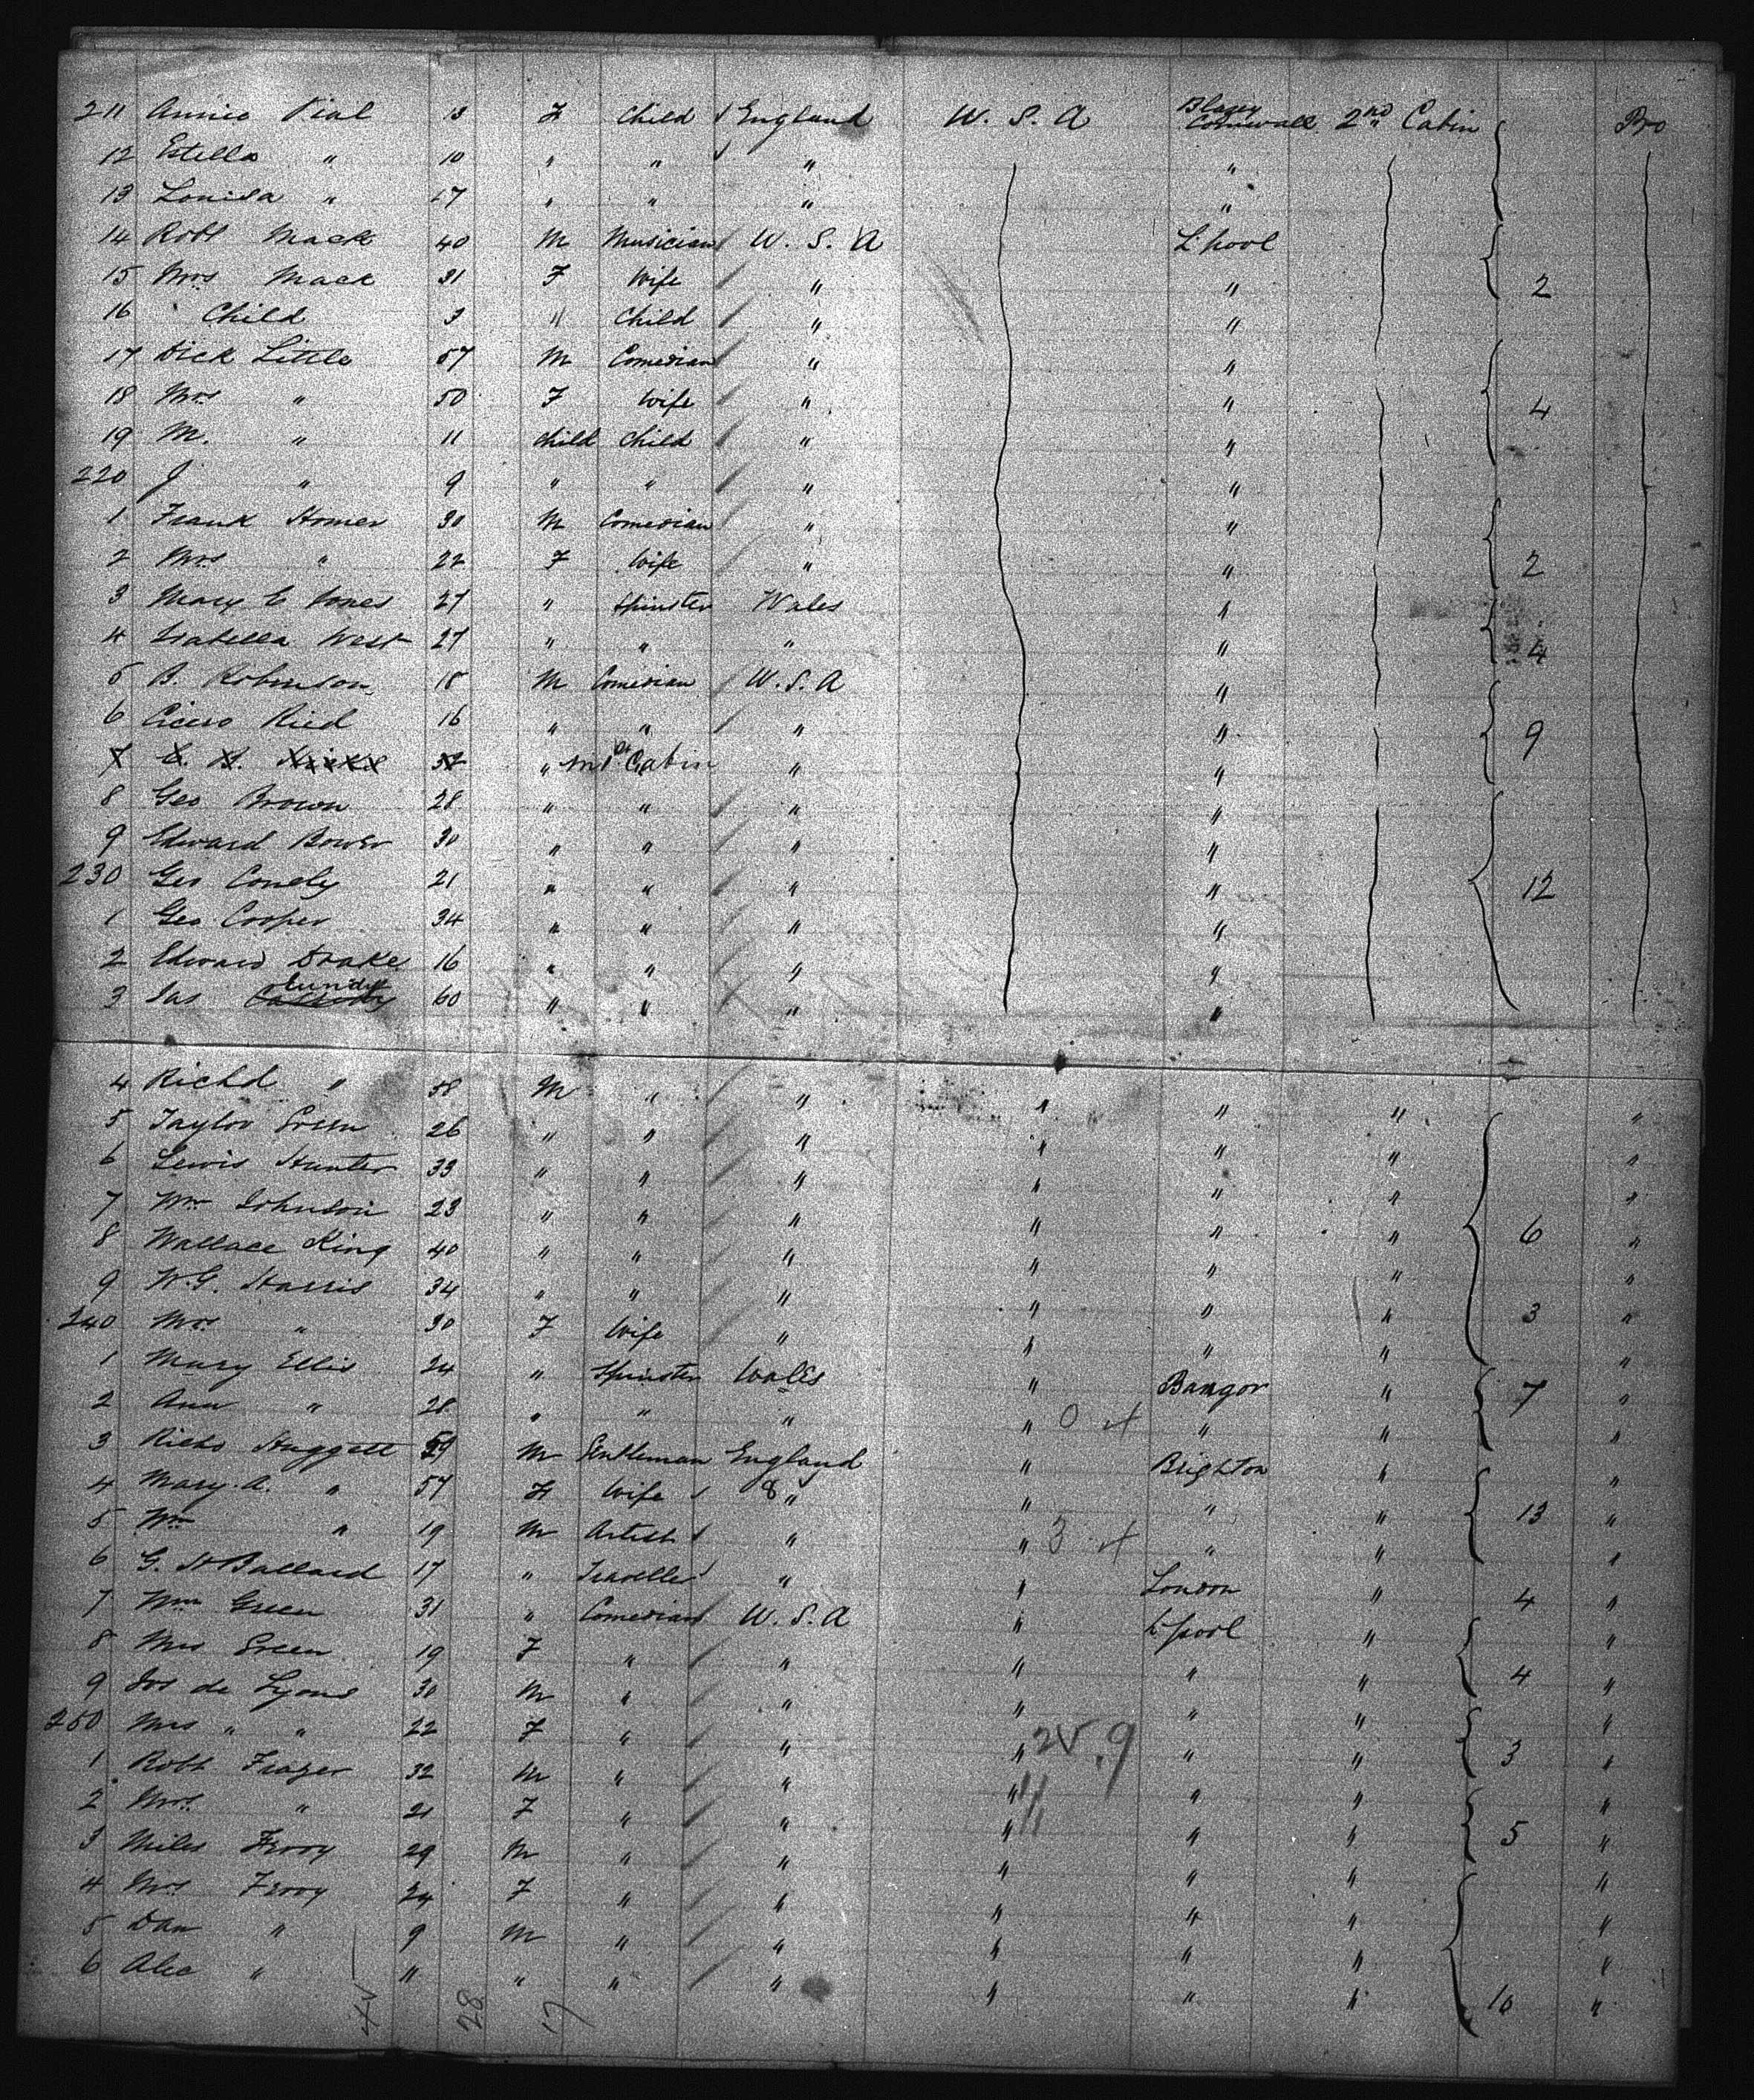 211 Annie Vial 13 F Child England U. S. A Blazey Cornwall 2nd Cabin Pro
12 Estella " 10 " " " "
13 Louisa " 17 " " " "
14 Robt Mack 40 M Musician U. S. A L'pool
15 Mrs Mack 31 F Wife " " 2
16 Child 3 " Child " "
17 Dick Little 57 M Comedian " "
18 Mrs " 50 F Wife " " 4
19 M. " 11 child child " "
220 J " 9 " " " "
1 Frank Homer 30 M Comedian " "
2 Mrs " 22 F Wife " " 2
3 Mary E Jones 27 " Spinster Wales "
4 Isabella West 27 " " " " 4
5 B. Robinson 18 M Comedian U. S. A "
6 Cicero Ried 16 " " " " 9
7 " in 1st Cabin " "
8 Geo Brown 28 " " " "
9 Edward Bower 30 " " " "
230 Geo Conely 21 " " " " 12
1 Geo Cooper 34 " " " "
2 Edward Drake 16 " " " "
3 Jas 60 " " " "
4 Richd " 58 M " " " " " "
5 Taylor Green 26 " " " " " " "
6 Lewis Hunter 33 " " " " " " "
7 Wm Johnson 23 " " " " " " "
8 Wallace King 40 " " " " " " 6 "
9 W. G. Harris 34 " " " " " " "
240 Mrs " 30 F Wife " " " " 3 "
1 Mary Ellis 24 " Spinster Wales " Bangor " 7 "
2 Ann " 28 " " " " " " "
3 Richd Huggett 59 M Gentleman England " Brighton " "
4 Mary. A. " 57 F Wife " " " " 13 "
5 Wm " 19 M Artist " " " " "
6 G. H Ballard 17 " Traveller " " London " 4 "
7 Wm Green 31 " Comedian U. S. A " L'pool " "
8 Mrs Green 19 F " " " " " 4 "
9 Jos de Lyons 30 M " " " " " "
250 Mrs " " 22 F " " " " " 3 "
1 Robt Frazer 32 M " " " " " "
2 Mrs " 21 F " " " " " 5 "
3 Miles Frooy 29 M " " " " " "
4 Mrs Frooy 24 F " " " " " "
5 Dan " 9 M " " " " " "
6 Alec " " " " " " " " 10 "
28 17